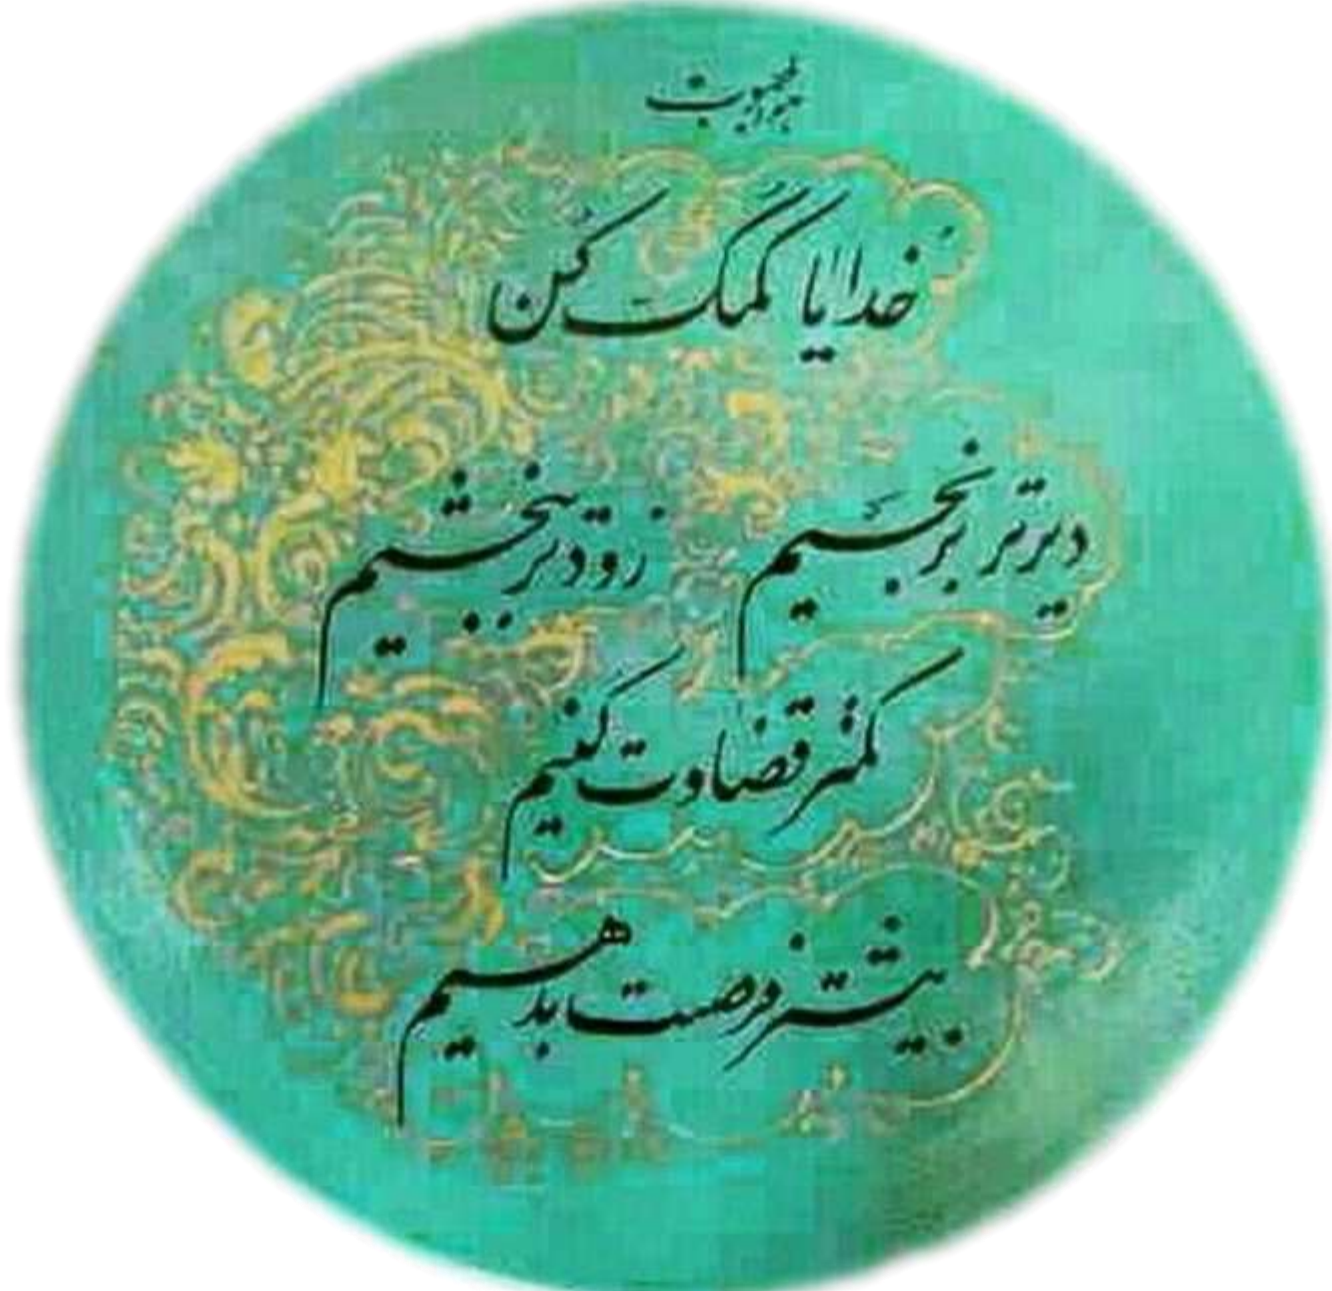 هوالمحبوب
خدایا کمک کن
دیرتر برنجیم زودتر ببخشیم
کمتر قضاوت کنیم
بیشتر فرصت بدهیم